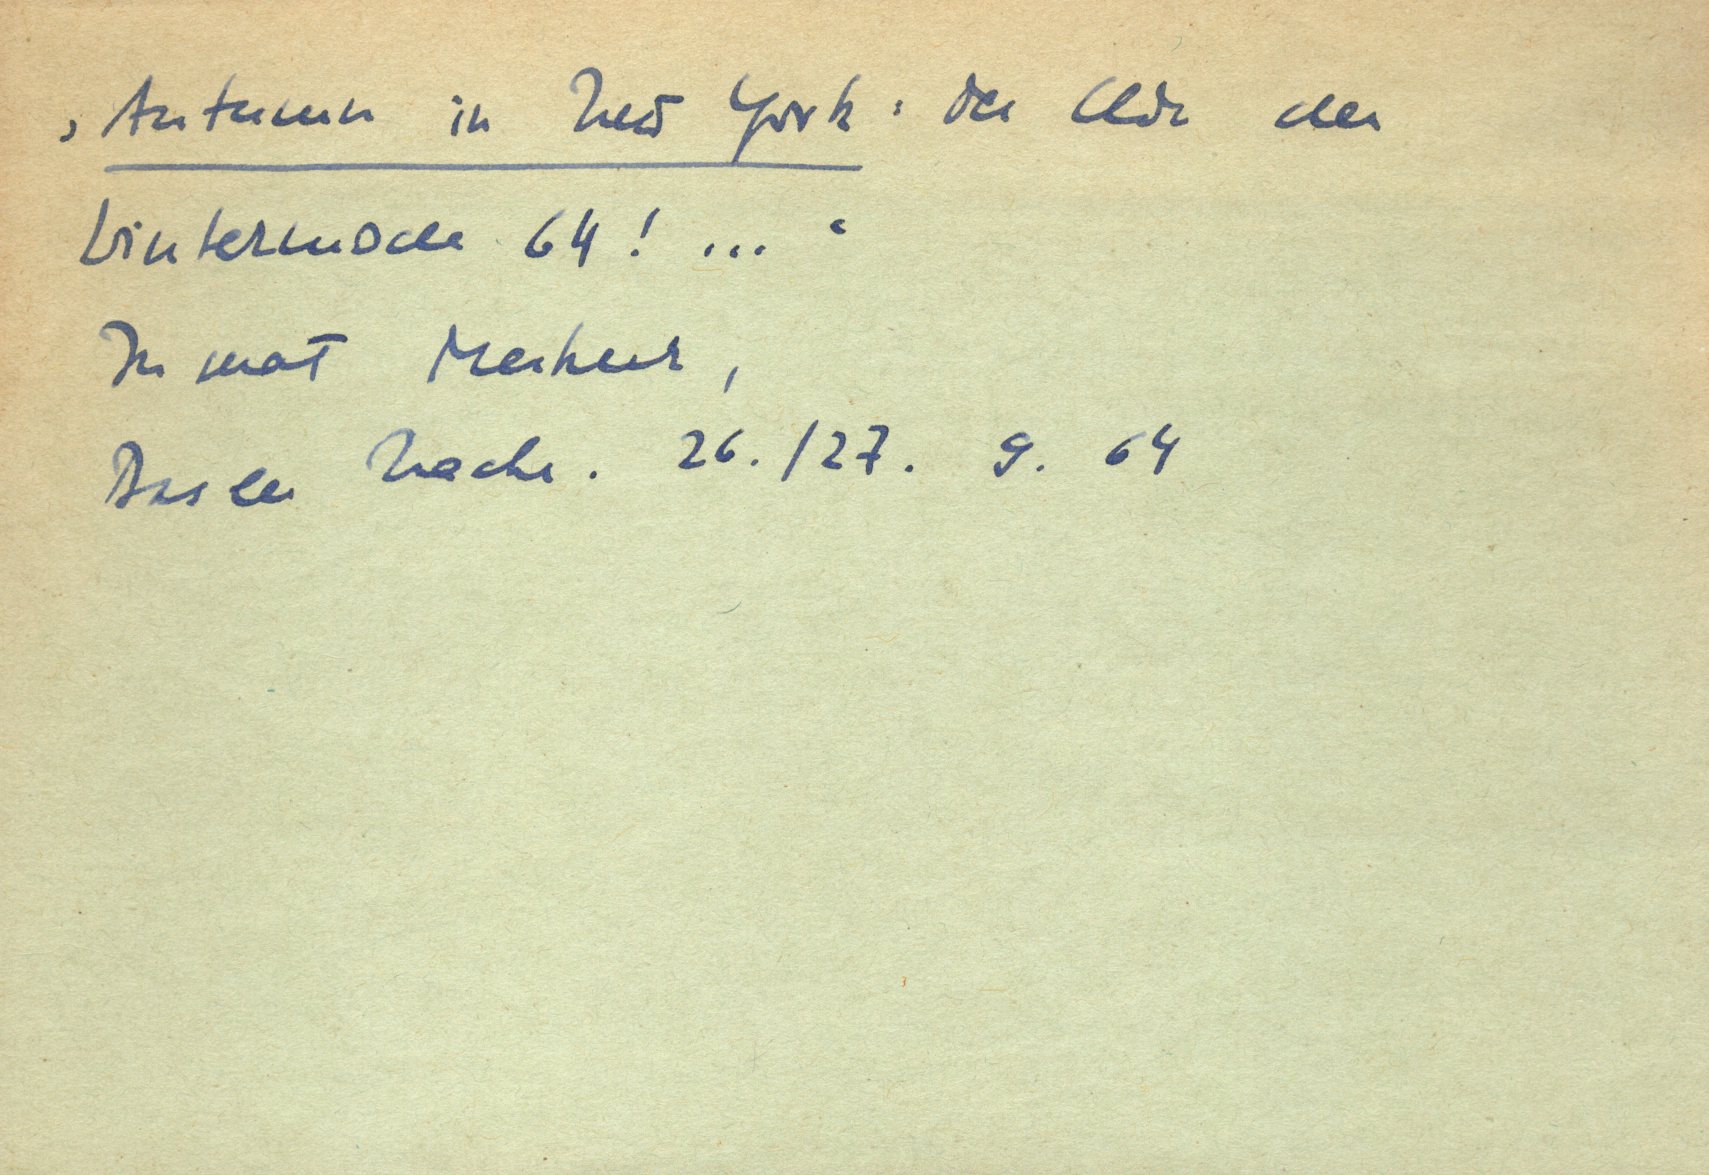 ‚Autumn in New York: der der
Wintermode 64! ...‘
Inserat Merkur,
Basler Nachr. 26./27. 9. 64